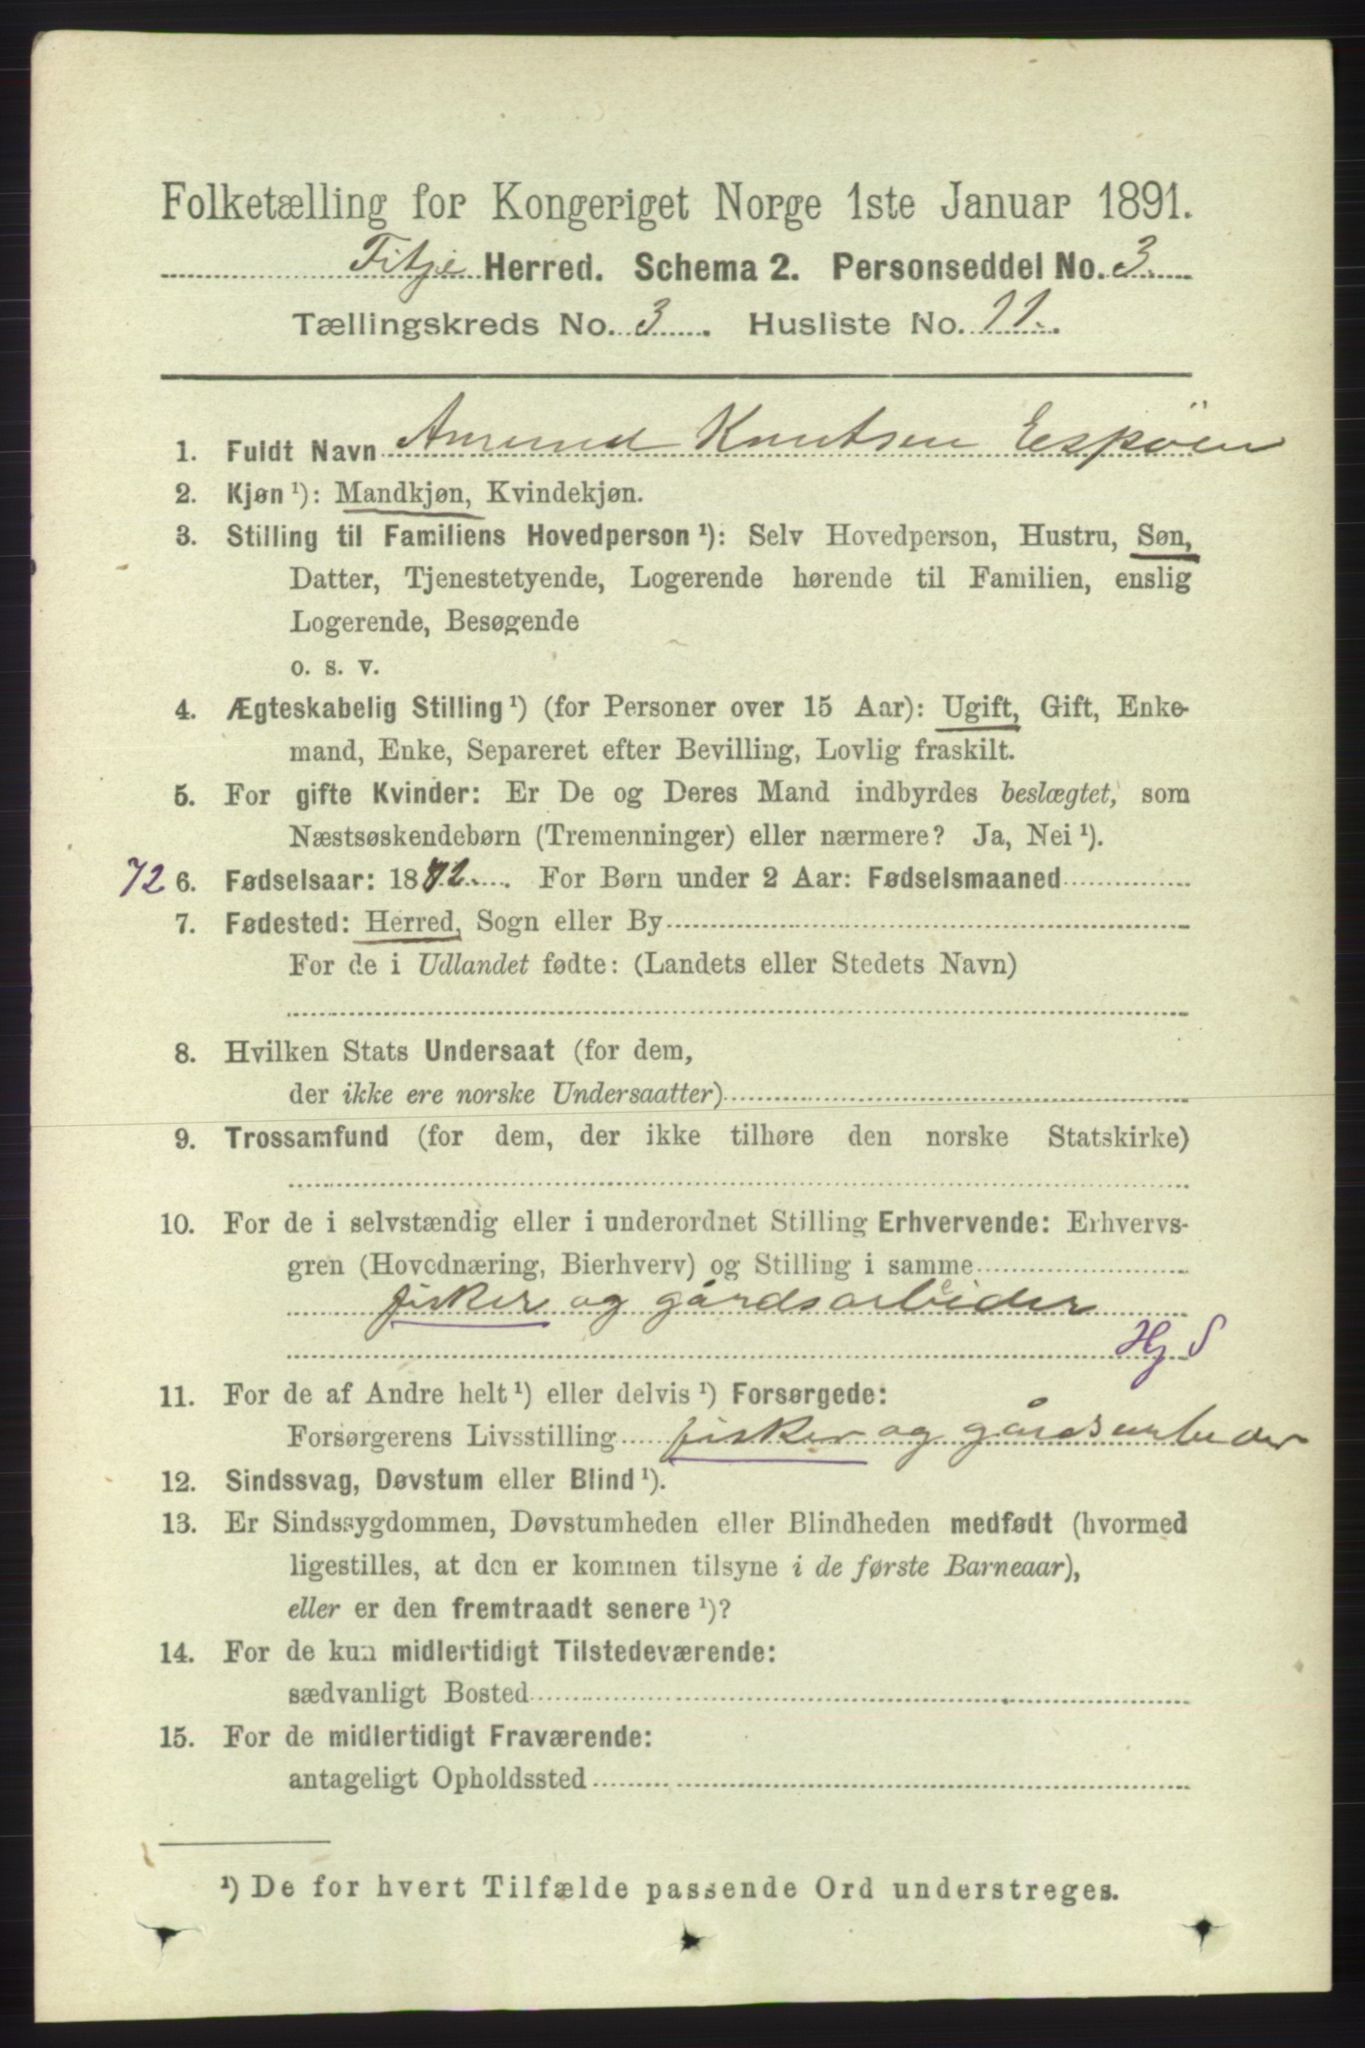 Folketælling for Kongeriget Norge 1ste Januar 1891.
Fitje Herred. Schema 2. Personseddel No. 3.
Tællingskreds No. 3. Husliste No. 11.
1. Fuldt Navn Amund Knutsen Espöen
2. Kjøn ¹): Mandkjøn, Kvindekjøn.
3. Stilling til Familiens Hovedperson ¹): Selv Hovedperson, Hustru, Søn,
Datter, Tjenestetyende, Logerende hørende til Familien, enslig
Logerende, Besøgende
o. s. v.
4. Ægteskabelig Stilling ¹) (for Personer over 15 Aar): Ugift, Gift, Enke-
mand, Enke, Separeret efter Bevilling, Lovlig fraskilt.
5. For gifte Kvinder: Er De og Deres Mand indbyrdes beslægtet, som
Næstsøskendebørn (Tremenninger) eller nærmere? Ja, Nei ¹).
72 6. Fødselsaar: 1872. For Børn under 2 Aar: Fødselsmaaned
7. Fødested: Herred, Sogn eller By
For de i Udlandet fødte: (Landets eller Stedets Navn)
8. Hvilken Stats Undersaat (for dem,
der ikke ere norske Undersaatter)
9. Trossamfund (for dem, der ikke tilhøre den norske Statskirke)
10. For de i selvstændig eller i underordnet Stilling Erhvervende: Erhvervs-
gren (Hovednæring, Bierhverv) og Stilling i samme
fisker og gårdsarbeider
Hj S
11. For de af Andre helt ¹) eller delvis ¹) Forsørgede:
Forsørgerens Livsstilling fisker og gårdsarbeder
12. Sindssvag, Døvstum eller Blind ¹).
13. Er Sindssygdommen, Døvstumheden eller Blindheden medfødt (hvormed
ligestilles, at den er kommen tilsyne i de første Barneaar),
eller er den fremtraadt senere ¹)?
14. For de kun midlertidigt Tilstedeværende:
sædvanligt Bosted
15. For de midlertidigt Fraværende:
antageligt Opholdssted
¹) De for hvert Tilfælde passende Ord understreges.